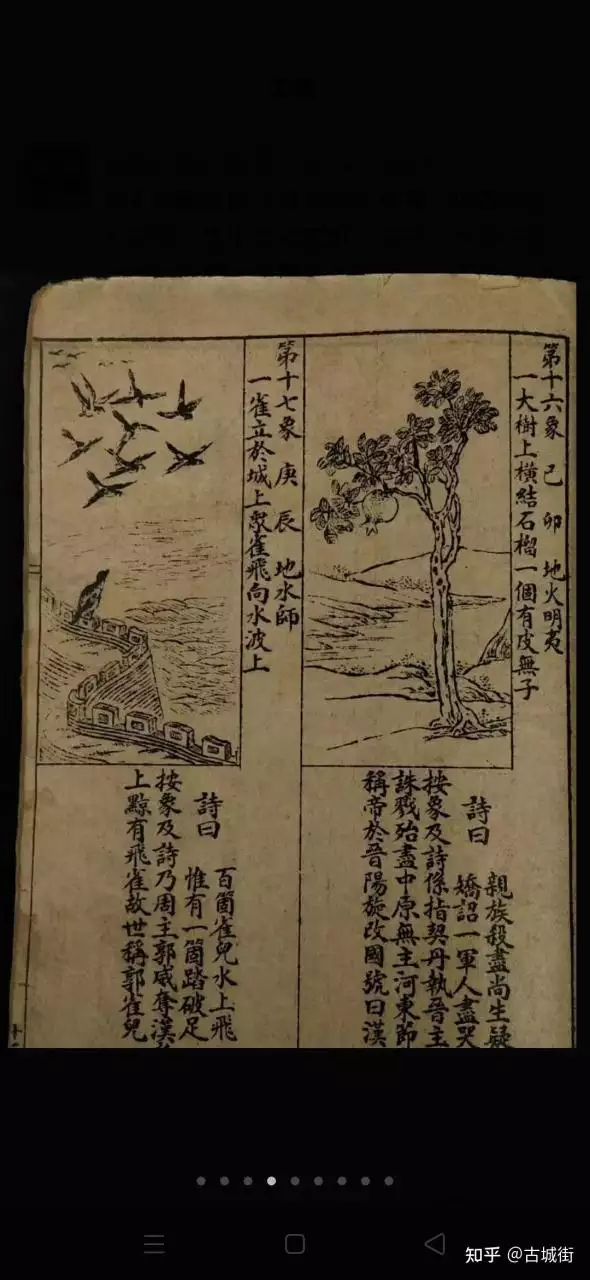 第十六象 己卯 地火明夷
一大樹上橫結石榴一個有皮無子
詩曰
親族殺盡尚生疑
嬌詔一軍人盡哭
按象及詩係指契丹執晉主
誅戮殆盡中原無主河東節
稱帝於晉陽旋改國號曰漢
第十七象 庚辰 地水師
一雀立於城上眾雀飛向水波上
詩曰
百箇雀兒水上飛
惟有一箇踏破足
按象及詩乃周主郭威奪漢
上黥有飛雀故世稱郭雀兒
知乎 @古城街